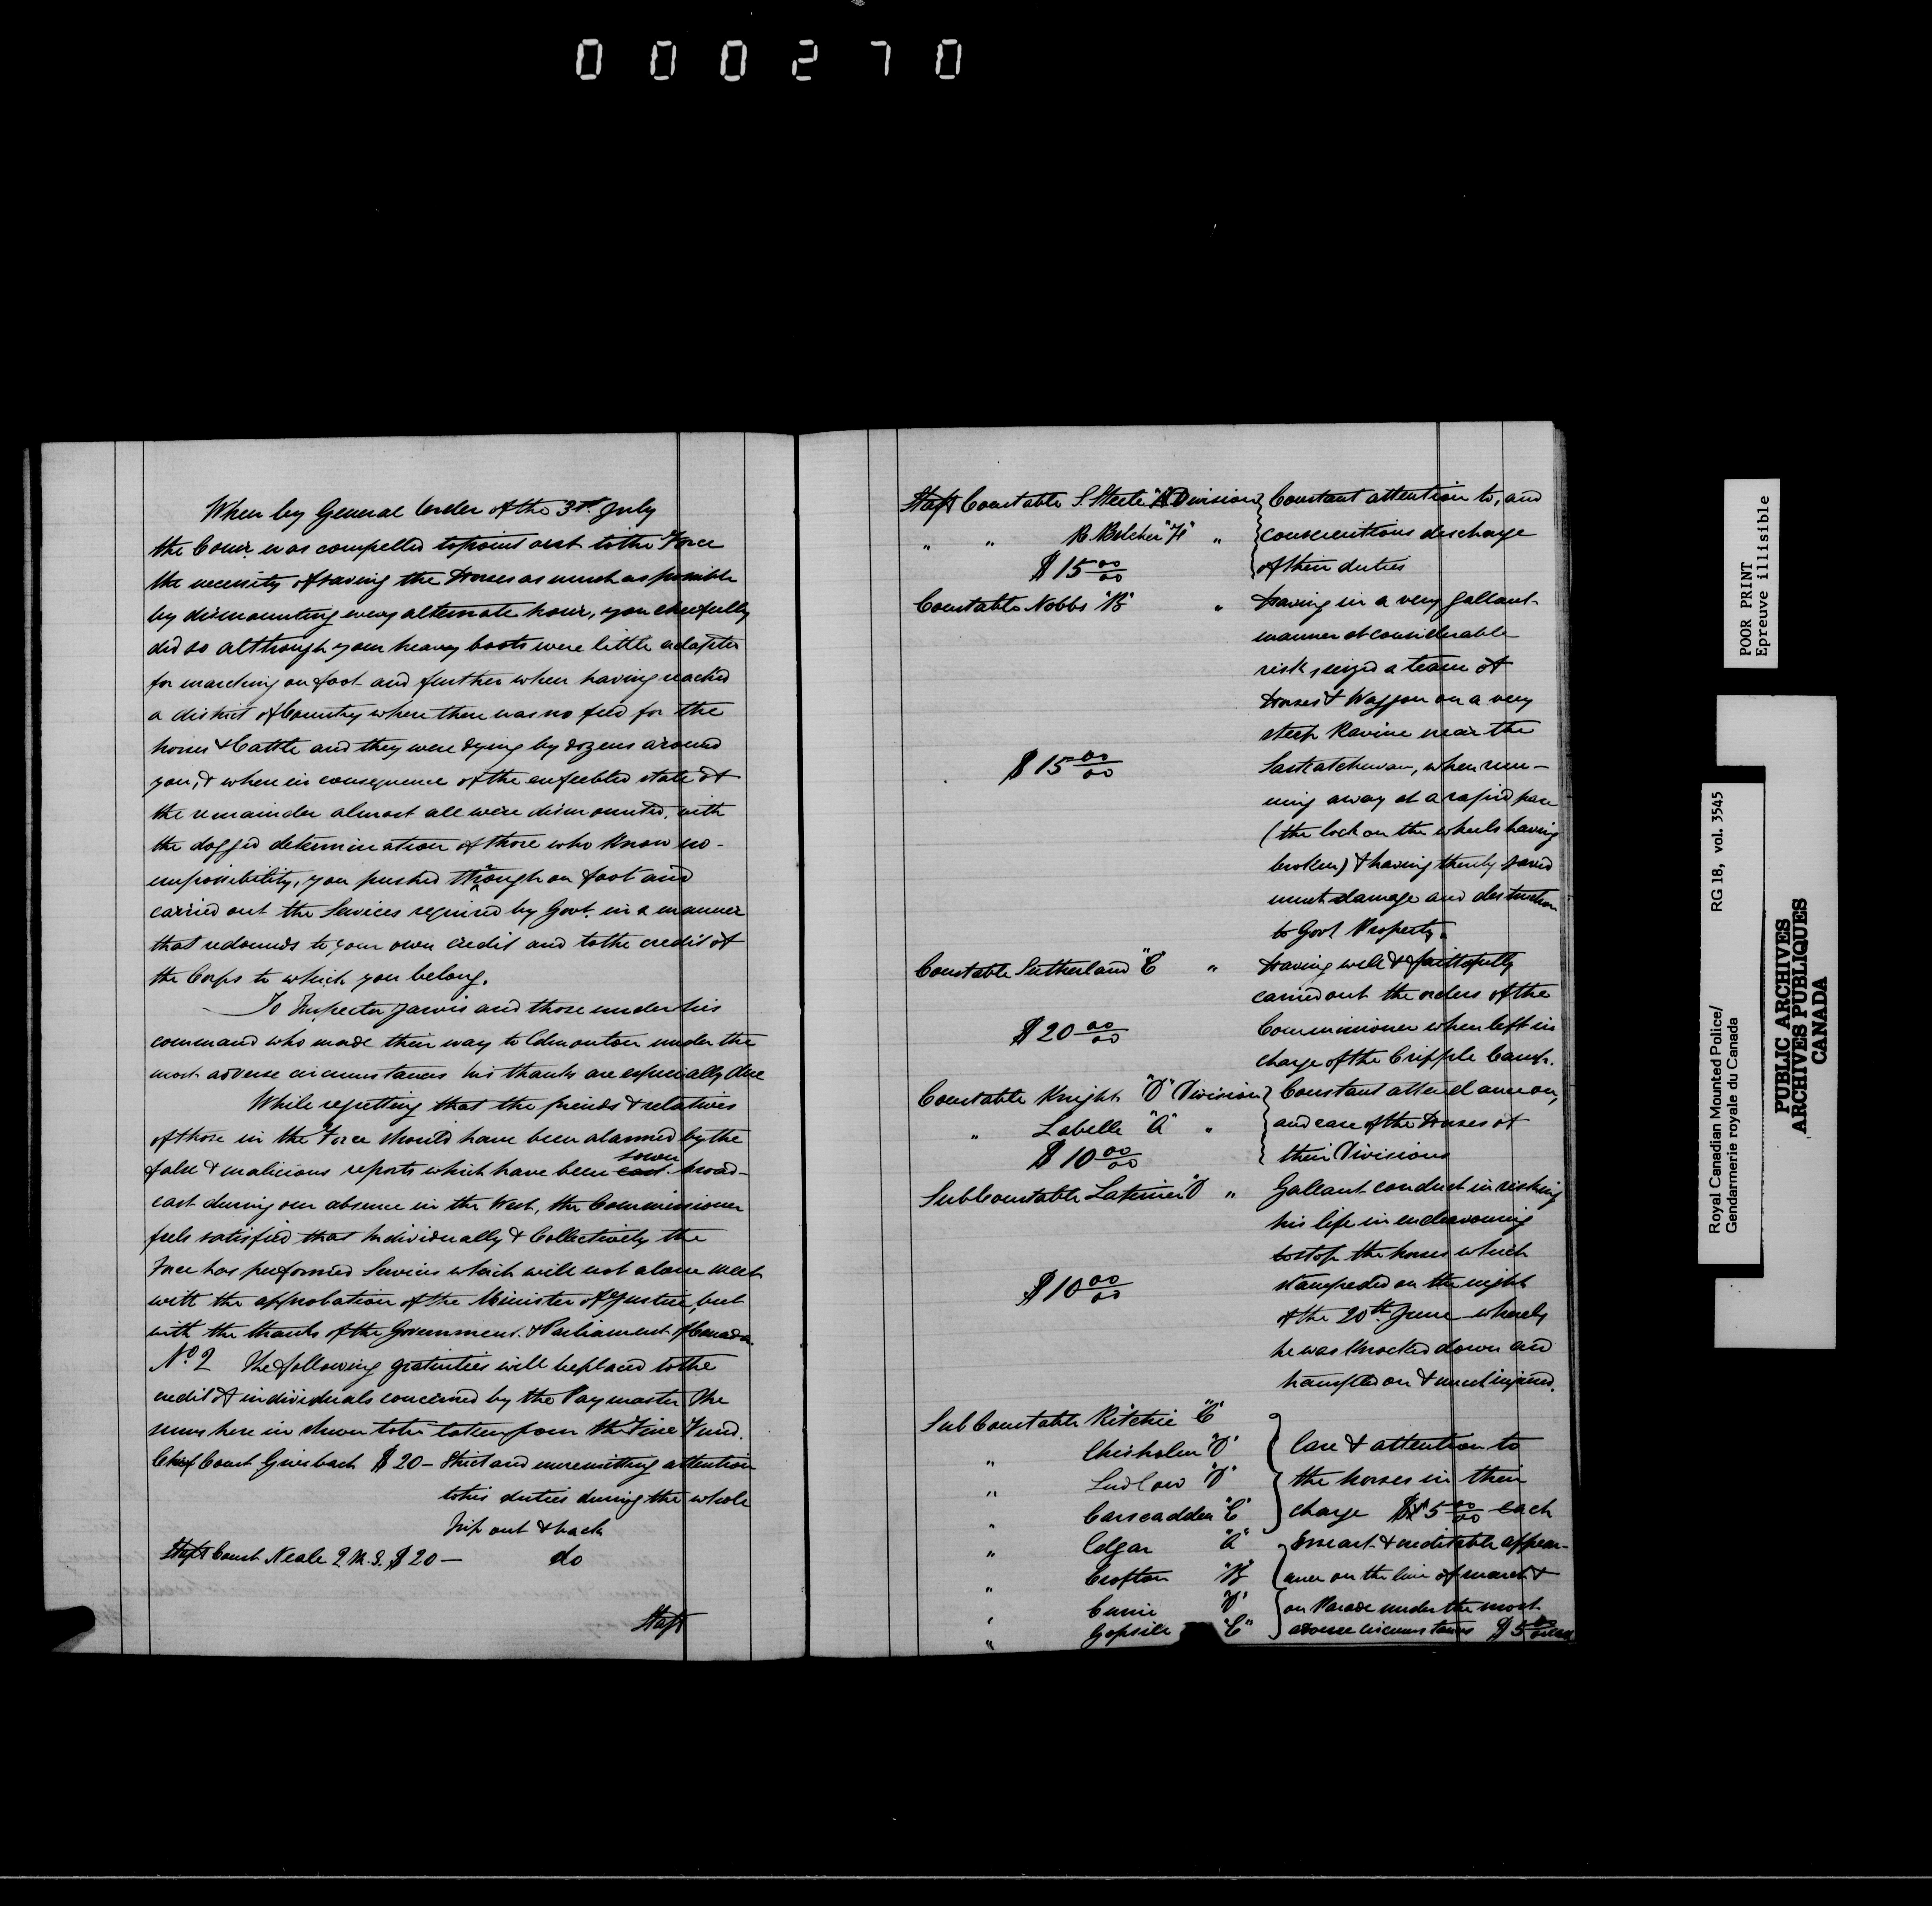 000270
When by General Order of the 3rd July
the Comr. was compelled to point out to the Force
the necessity of saving the Horses as much as possible
by dismounting every alternate hour, you cheerfully
did so although your heavy boots were little adapted
for marching on foot and further when having reached
a district of Country where there was no feed for the
horses & Cattle and they were dying by dozens around
you, & when in consequence of the enfeebled state of
the remainder almost all were dismounted, with
the dogged determination of those who know no-
impossibility, you pushed through on foot and
carried out the Services required by Govt. in a manner
that redounds to your own credit and to the credit of
the Corps to which you belong.
To Inspector Jarvis and those under his
command who made their way to Edmonton under the
most adverse circumstances his thanks are especially due
While regretting that the friends & relatives
of those in the Force should have been alarmed by the
false & malicious reports which have been cast sown broad-
cast during our absence in the West, the Commissioner
feels satisfied that Individually & Collectively the
Force has performed Services which will not alone meet
with the approbation of the Minister of Justice, but
with the thanks of the Government & Parliament of Canada.
No. 2 The following gratuities will be placed to the
credit of individuals concerned by the Paymaster The
sums here in shewn to be taken from the Fine Fund.
Chief Const Griesbach $20 - Strict and unremitting attention
to his duties during the whole
trip out & back
Staff Const Neale Q.M.S. $20 - do
Staff
Staff Constable S. Steele "A" Division } Constant attention to, and
" " R. Belcher "F" " conscientious discharge
$15 00/00 of their duties
Constable Nobbs "B" " Having in a very gallant
manner at considerable
risk seized a team of
Horses & Waggon on a very
steep Ravine near the
$15 00/00 Saskatchewan, when run-
ning away at a rapid pace
(the lock on the wheels having
broken) & having thereby saved
much damage and destruction
to Govt Property.
Constable Sutherland "E" " Having well & faithfully
carried out the orders of the
$20 00/00 Commissioner when left in
charge of the Cripple Camp.
Constable Knight "D" Division } Constant attendance on,
" Labelle "A" " and care of the Horses of
$10 00/00 their Divisions
Sub Constable Latimer "D" " Gallant conduct in risking
his life in endeavouring
to stop the horses which
$10 00/00 stampeded on the night
of the 20th June whereby
he was knocked down and
trampled on & much injured.
Sub Constable Ritchie "E"
" Chisholm "D" } Care & attention to
" Ludlow "D" the horses in their
" Carscadden "E" charge $5 00/00 each
" Edgar "A" } Smart & creditable appear-
" Crofton "B" ance on the line of march &
" Currie "D" on Parade under the most
" Gopsill "E" adverse circumstances $5 00/00 each
POOR PRINT
Epreuve illisible
Royal Canadian Mounted Police/ RG 18, vol. 3545
Gendarmerie royale du Canada
PUBLIC ARCHIVES
ARCHIVES PUBLIQUES
CANADA